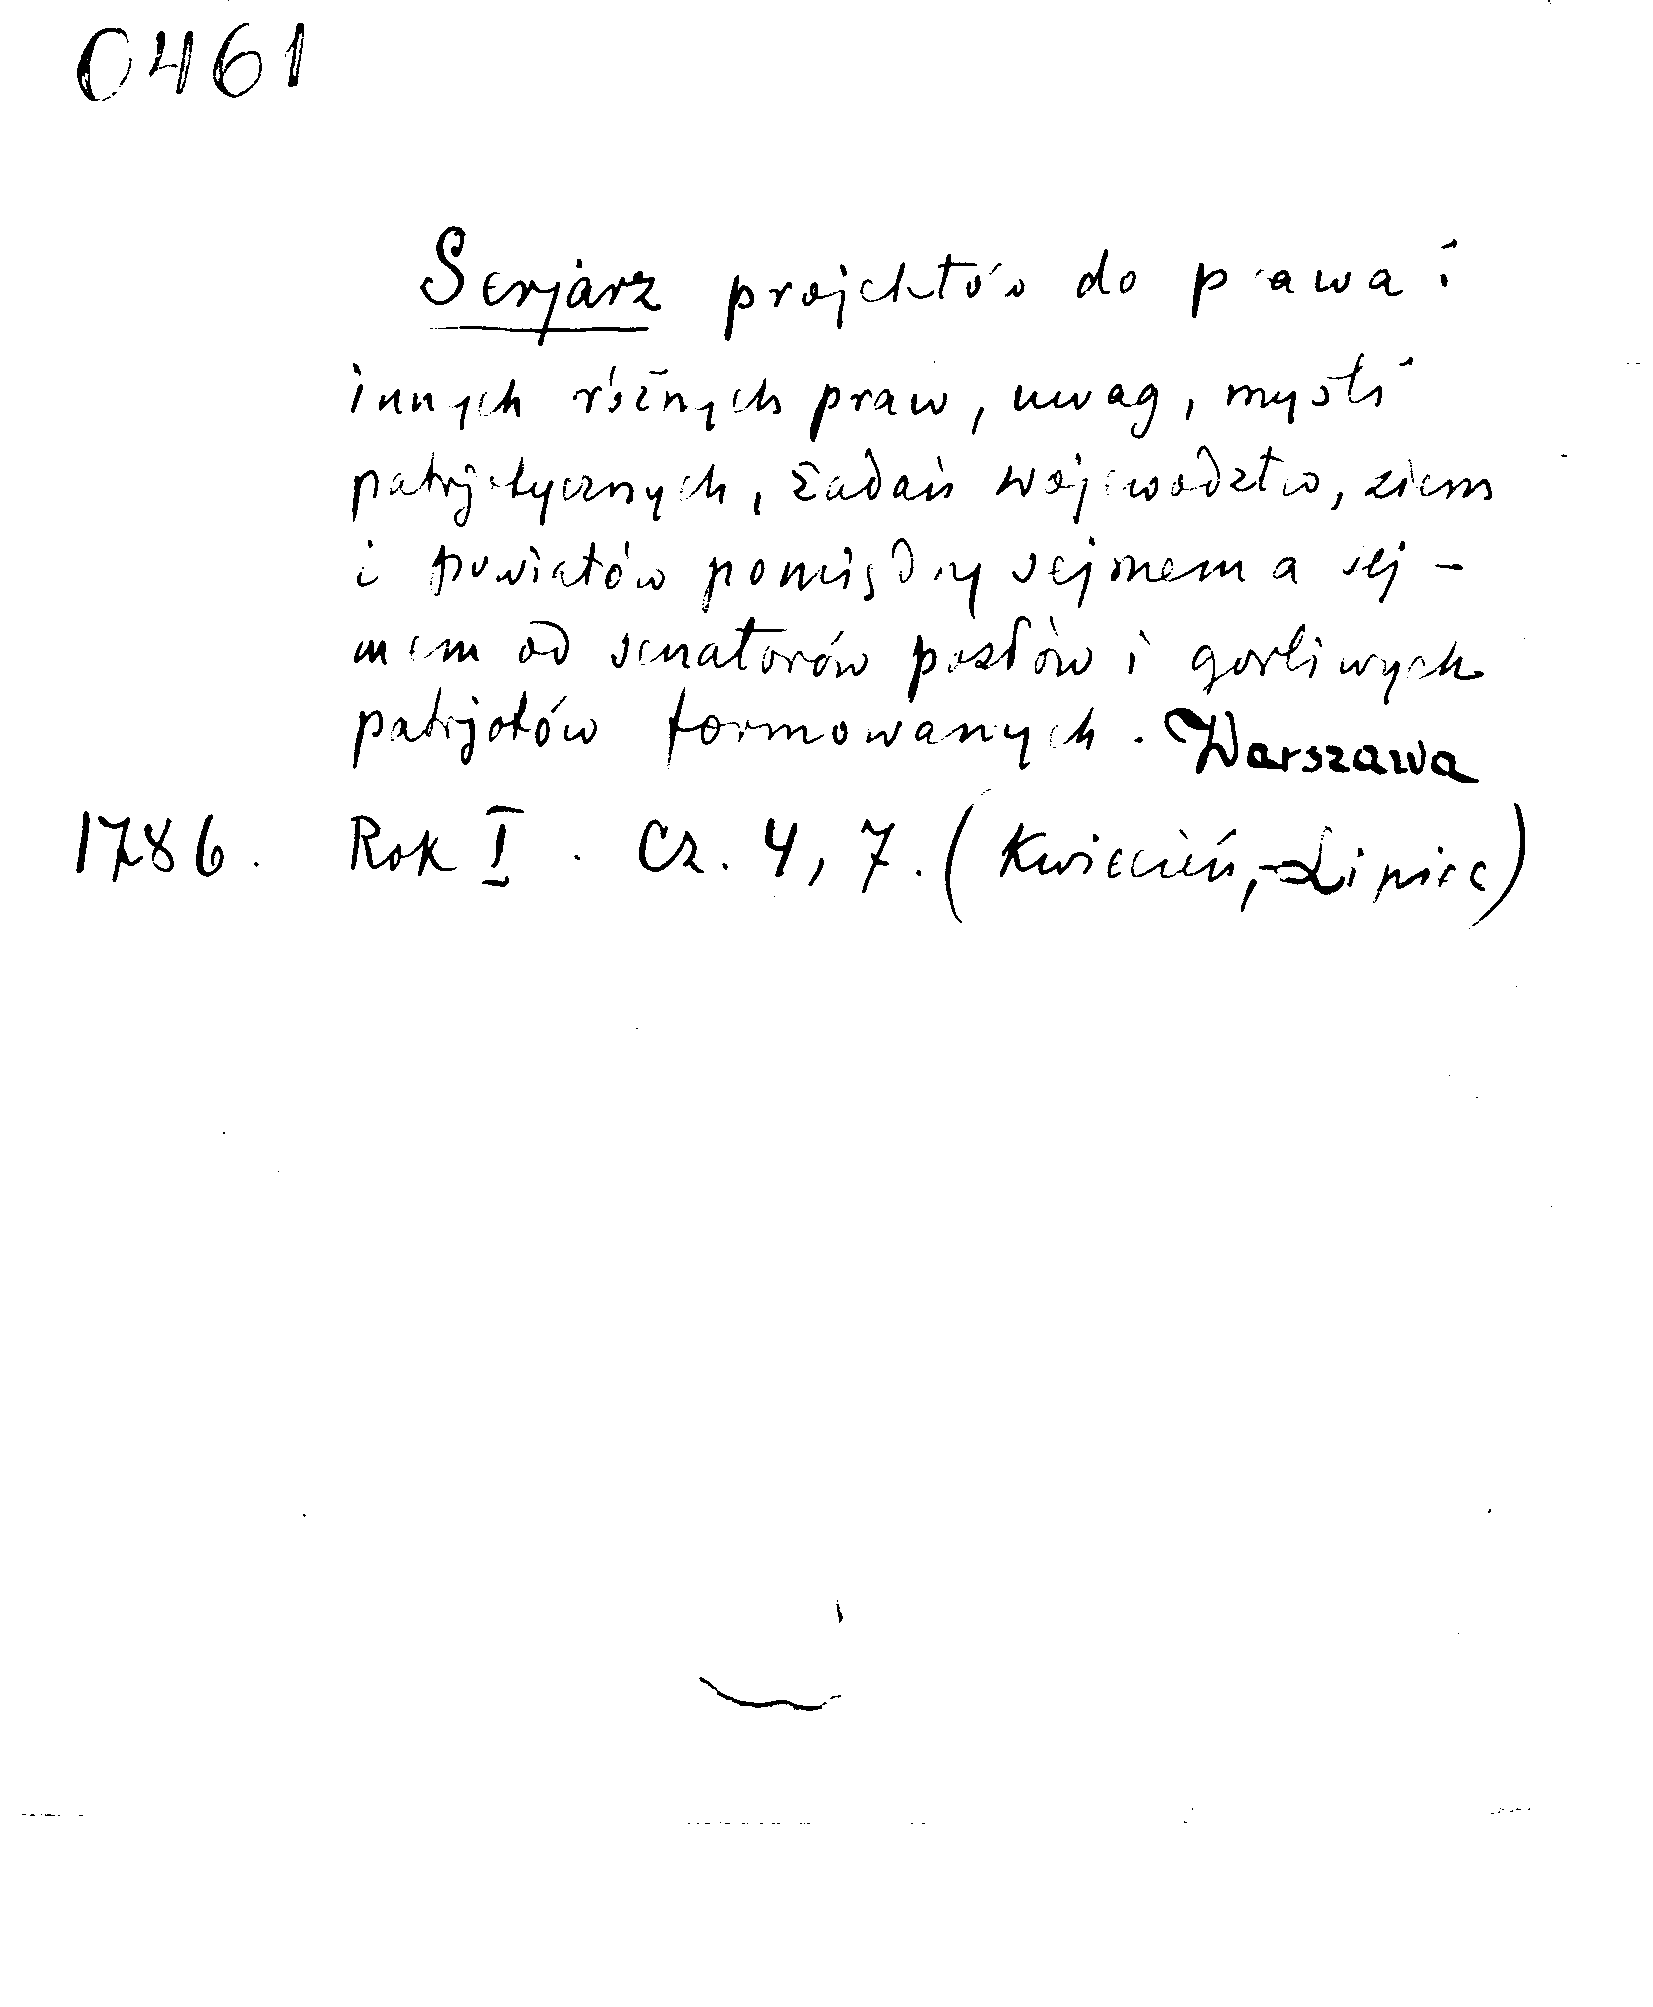 0461
Serjarz projektów do prawa i
innych różnych praw, uwag, myśli
patrjotycznych, żadań województw, ziem
i powiatów pomiędzy sejmem a sej-
mem od senatorów posłów i gorliwych
patrjotów formowanych. Warszawa
1786. Rok I. Cz. 4, 7. (Kwiecień, - Lipiec)